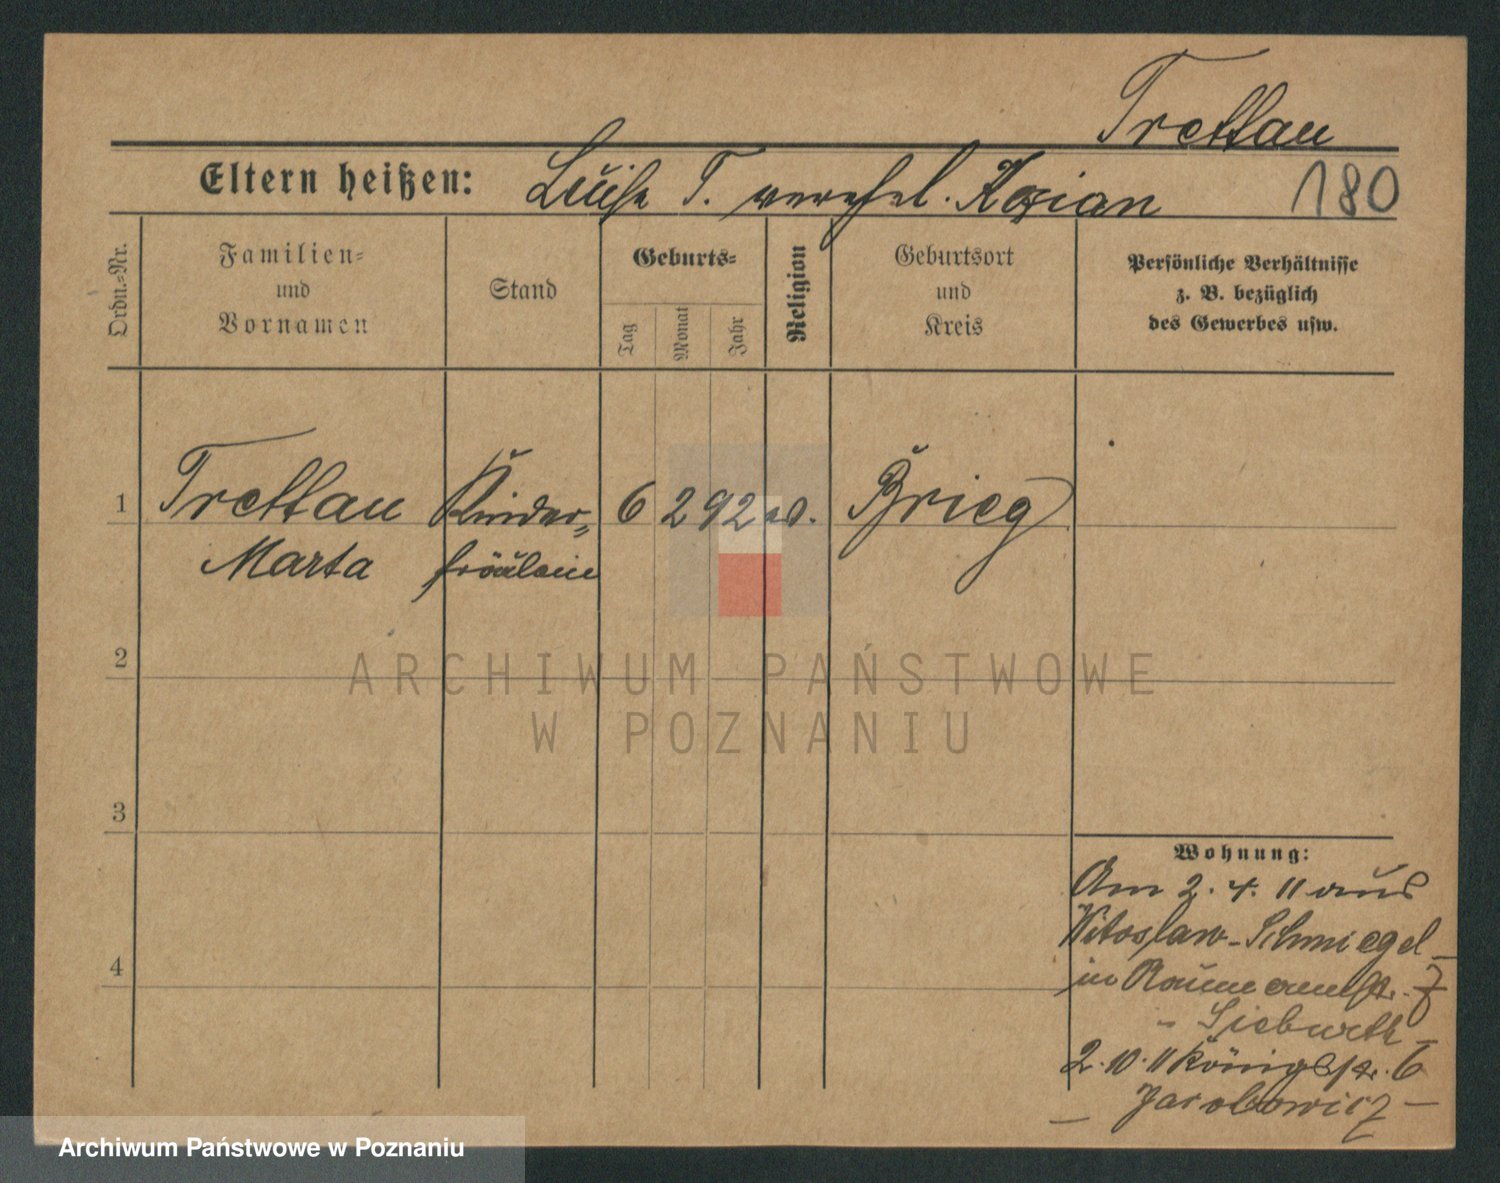 Trettau
Eltern heißen: Luise T. verehel. Kosian 180
Ordn.=Nr.
Familien=
und
Vornamen
Stand
Geburts=
Tag
Monat
Jahr
Religion
Geburtsort
und
Kreis
Persönliche Verhältnisse
z. B. bezüglich
des Gewerbes usw.
1 Trettau Kinder= 6 2 92 Brieg
Marta fräulein
2
ARCHIWUM PAŃSTWOWE
W POZNANIU
3
4
Wohnung:
Am 2. 4. 11 aus
Witoslaw - Schmiegel -
in Naumannstr. 7
" Sieburth -
2. 10. 11 Königstr. 6
- Jacobowicz -
Archiwum Państwowe w Poznaniu